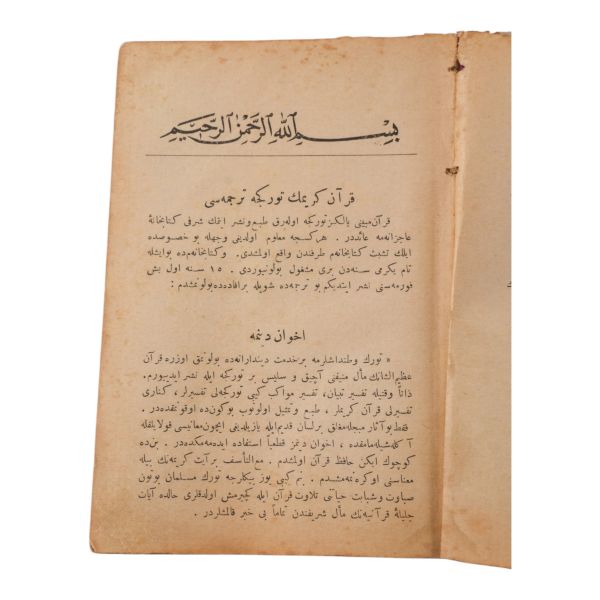 بسم الله الرحمن الرحيم
قرآن كريمك توركجه ترجمه‌سى
قرآن مبينى يالكز توركجه اوله‌رق طبع و نشر ايتمك شرفى كتابخانهٔ
عاجزانه‌مه عائددر . هركسجه معلوم اولديغى وجهله بو خصوصده
ايلك تشبث كتابخانه‌م طرفندن واقع اولمشدى . و كتابخانه‌م ده بو ايشله
تام يكرمى سنه‌دن برى مشغول بولنيوردى . ١٥ سنه اول بش
فورمه‌سنى نشر ايتديكم بو ترجمه‌ده شويله بر افاده‌ده بولونمشدم :
اخوان دينمه
« تورك وطنداشلرمه بر خدمت ديندارانه‌ده بولونمق اوزره قرآن
عظيم‌الشانك مآل منيفنى آچيق و سليس بر توركجه ايله نشر ايدييورم .
ذاتاً وقتيله تفسير تبيان، تفسير مواكب كبى توركجه‌لى تفسيرلر، كنارى
تفسيرلى قرآن كريملر ، طبع و تمثيل اولونوب بوكون‌ده اوقونمقده‌در .
فقط بو آثار مبجله مغلق بر لسان قديم ايله يازيلديغى ايچون معانيسى قولايلقله
آكلاشيله‌مامقده ، اخوان دينمز قطعياً استفاده ايده‌مه‌مكده‌در . بن‌ده
كوچوك ايكن حافظ قرآن اولمشدم . مع التأسف بر آيت كريمه‌نك بيله
معناسنى اوكره‌نمه‌مشدم . بنم كبى يوز بيكلرجه تورك مسلمان بوتون
صباوت و شبابت حياتنى تلاوت قرآن ايله كچيرمش اولدقلرى حالده آيات
جليلهٔ قرآنيه‌نك مآل شريفندن تماماً بى خبر قالمشلردر .